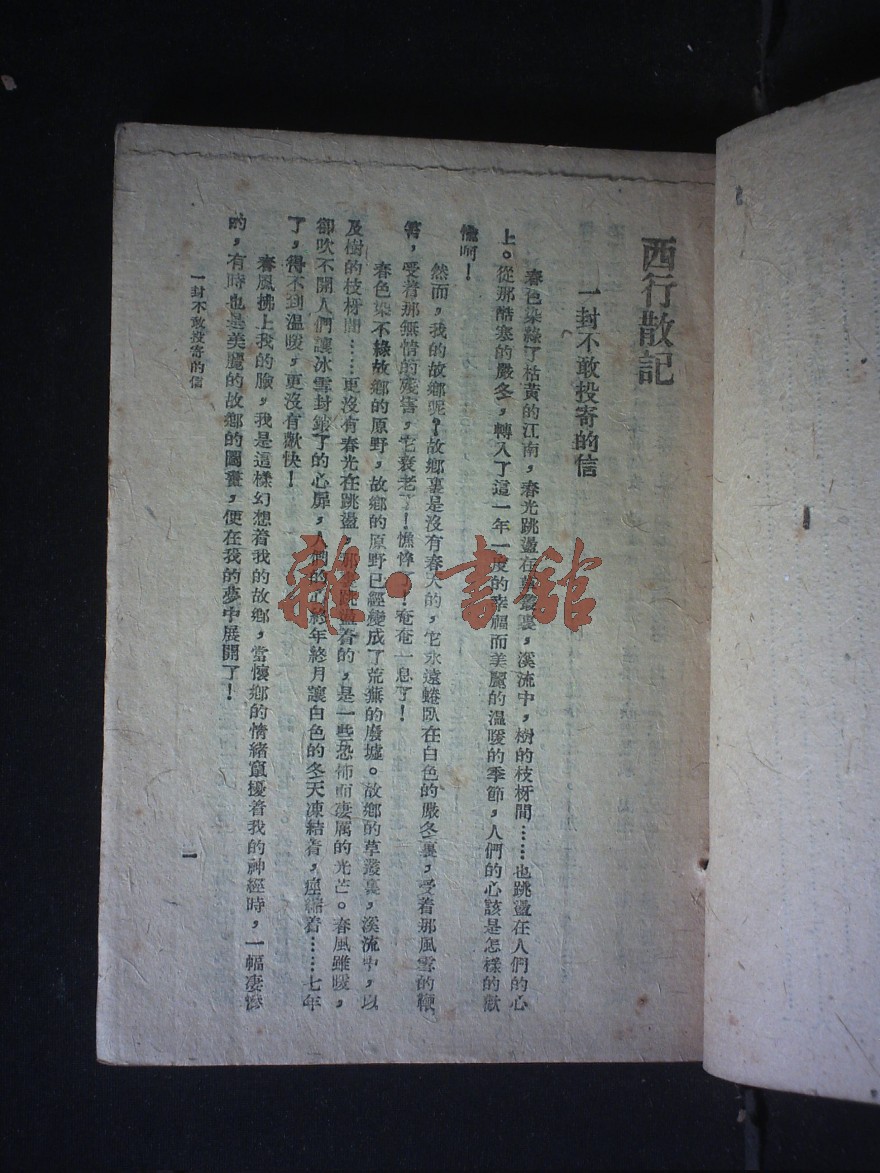 西行散記
一封不敢投寄的信
春色染綠了枯黃的江南，春光跳盪在草叢裏，溪流中，樹的枝枒間……也跳盪在人們的心
上。從那酷寒的嚴冬，轉入了這一年一度的幸福而美麗的溫暖的季節，人們的心該是怎樣的歡
愉呵！
然而，我的故鄉呢？故鄉裏是沒有春天的，它永遠蜷臥在白色的嚴冬裏，受着那風雪的鞭
笞，受着那無情的殘害，它衰老了！憔悴了！奄奄一息了！
春色染不綠故鄉的原野，故鄉的原野已經變成了荒蕪的廢墟。故鄉的草叢裏，溪流中，以
及樹的枝枒間……更沒有春光在跳盪，那裏跳盪着的，是一些恐怖而淒厲的光芒。春風雖暖，
卻吹不開人們讓冰雪封鎖了的心扉，人們的心終年終月讓白色的冬天凍結着，痙縮着……七年
了，得不到溫暖，更沒有歡快！
春風拂上我的臉，我是這樣幻想着我的故鄉，當懷鄉的情緒竄擾着我的神經時，一幅淒慘
的，有時也是美麗的故鄉的圖畫，便在我的夢中展開了！
一封不敢投寄的信
一
雜·書館